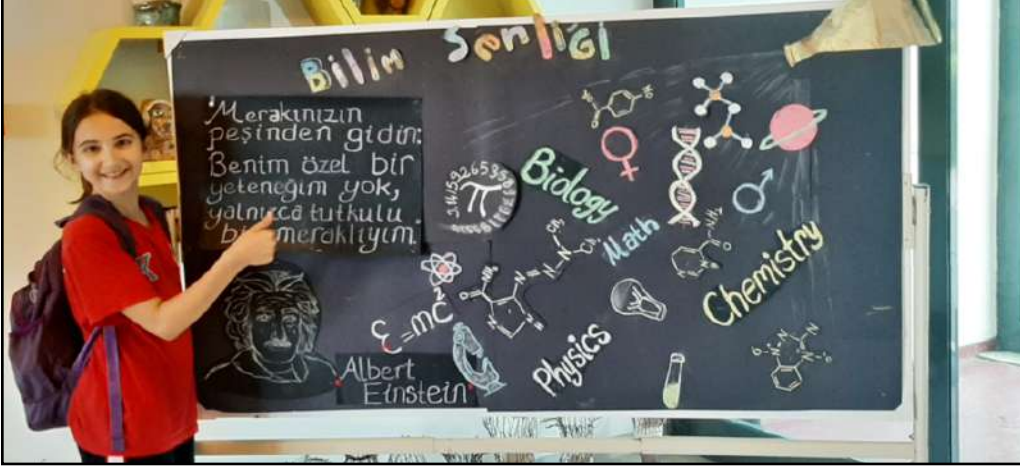 Bilim Şenliği
"Merakınızın
peşinden gidin:
Benim özel bir
yeteneğim yok,
yalnızca tutkulu
bir meraklıyım."
3.14159265358
π
Biology
Math
Chemistry
E=mc²
Physics
Albert
Einstein